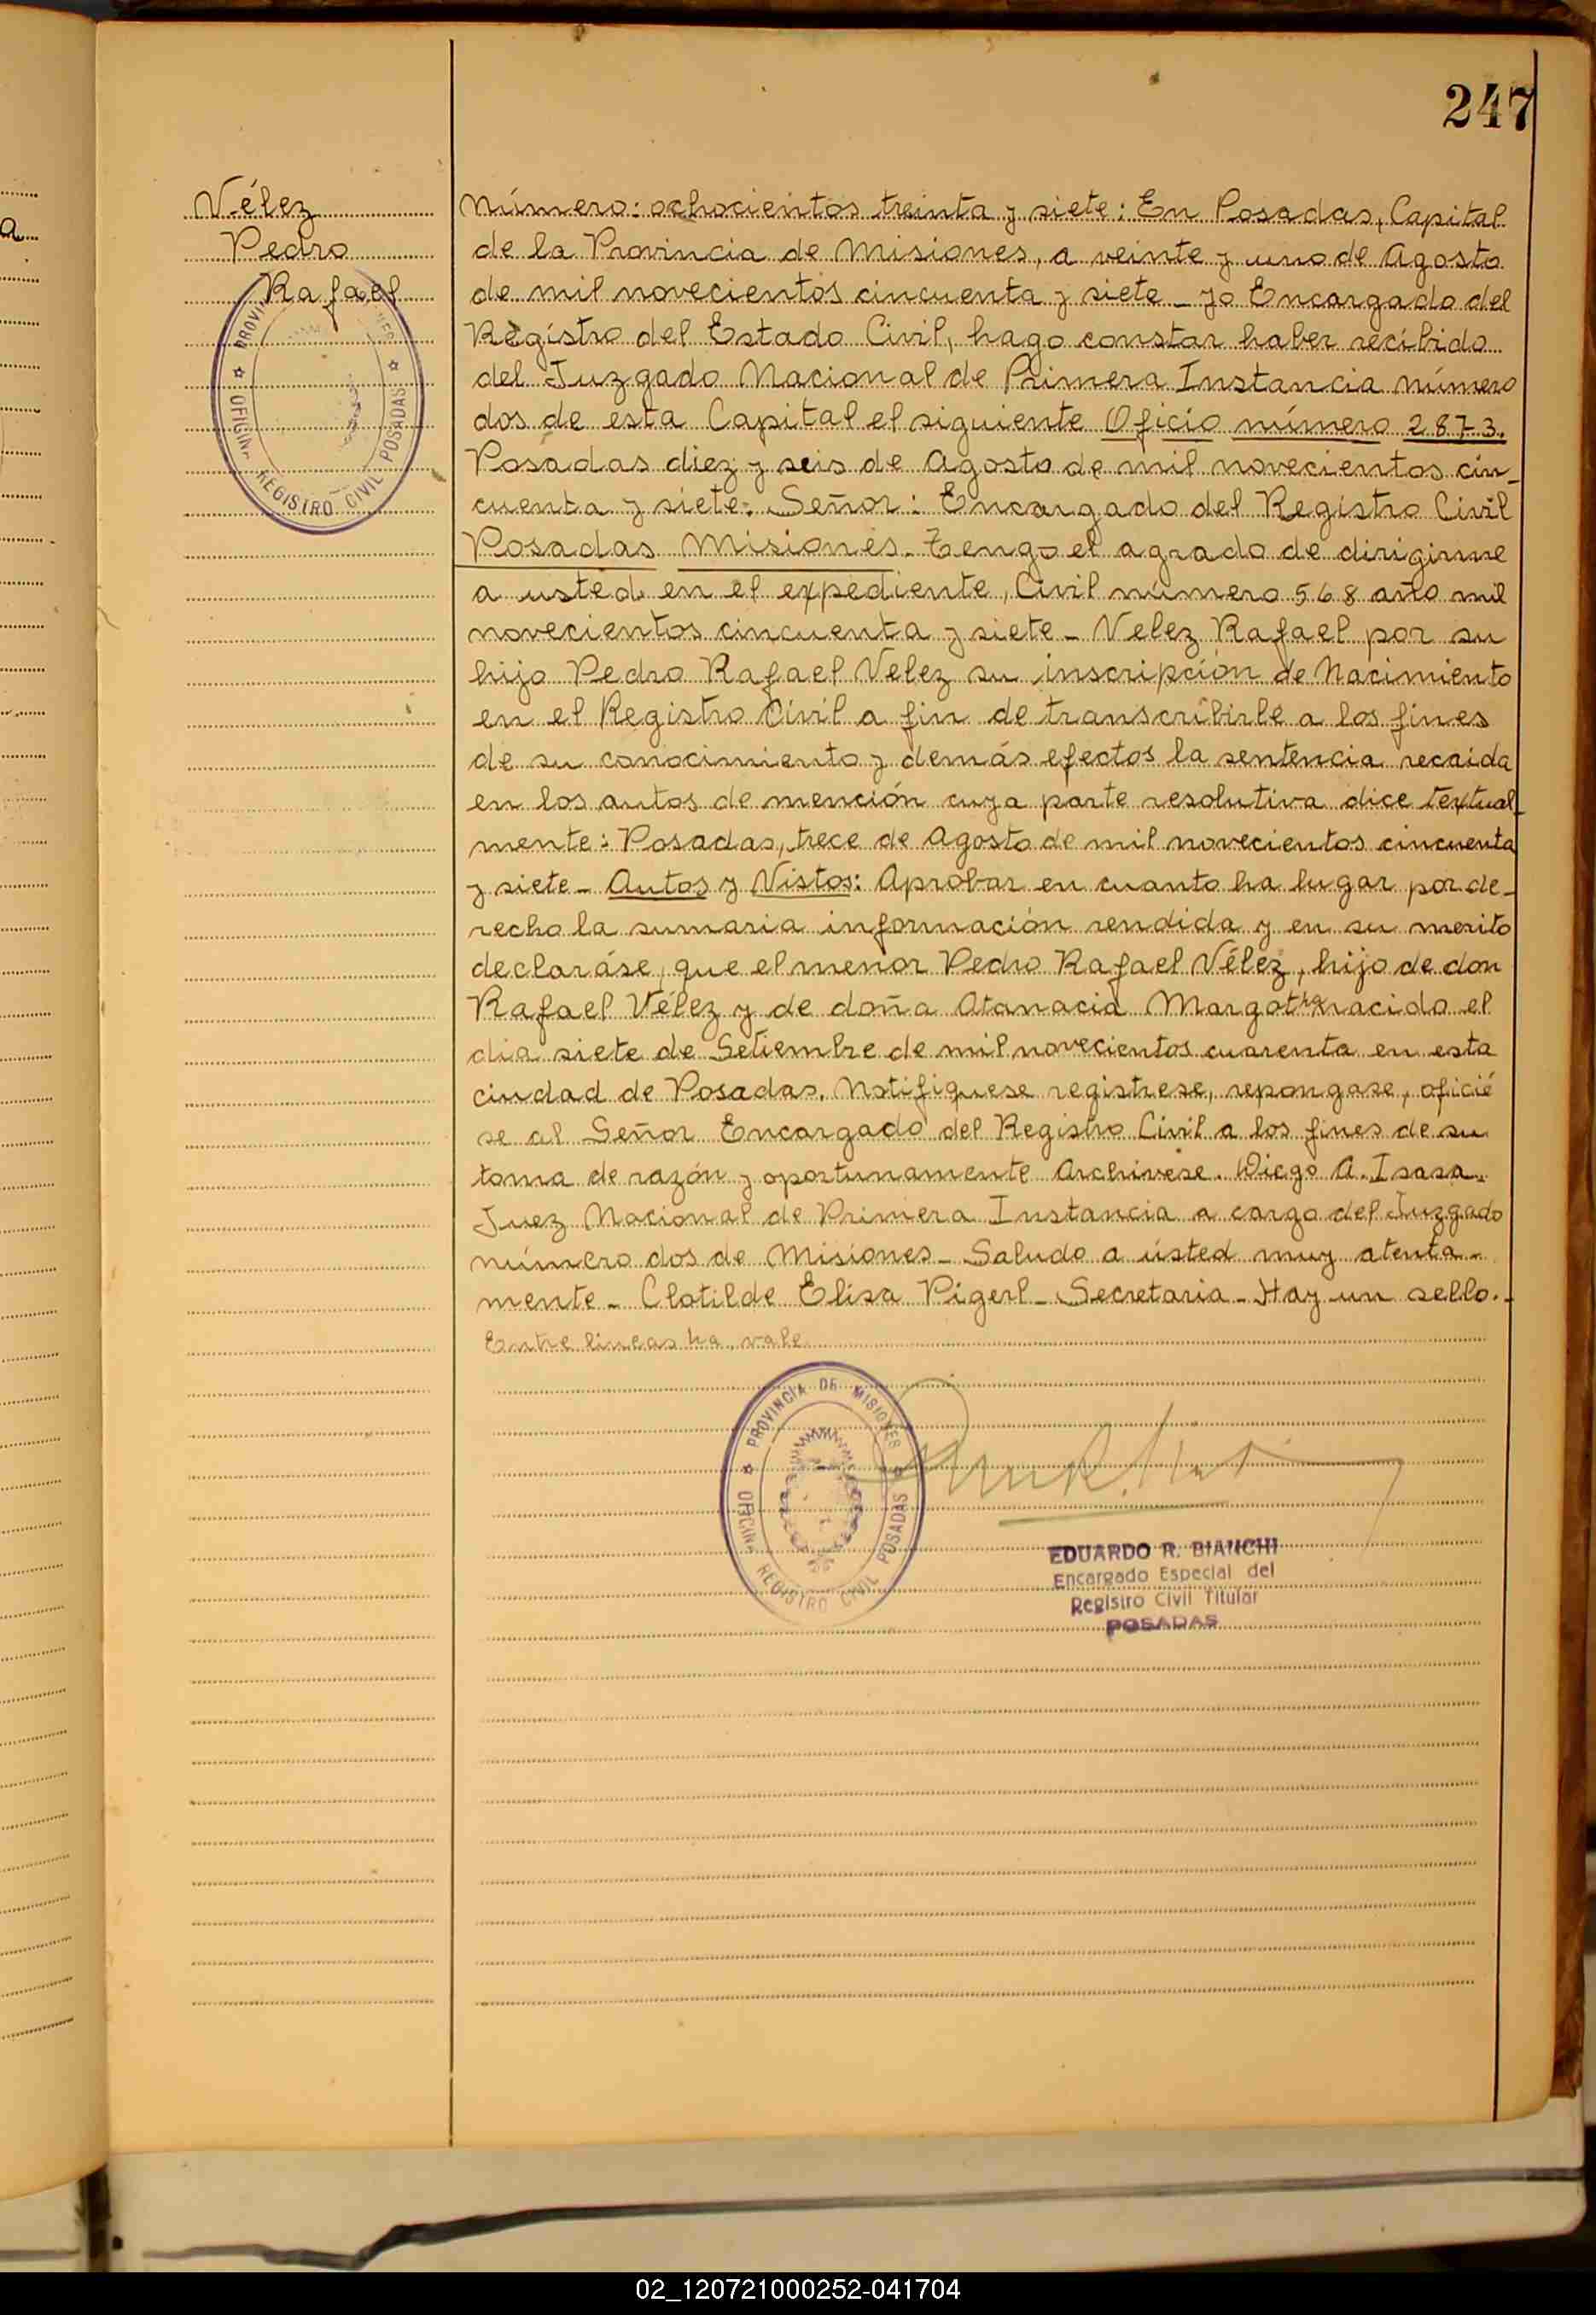 247
Vélez
Pedro
Rafael
PROVINCIA DE MISIONES
OFICINA REGISTRO CIVIL POSADAS
Número: ochocientos treinta y siete: En Posadas, Capital
de la Provincia de Misiones, a veinte y uno de Agosto
de mil novecientos cincuenta y siete - yo Encargado del
Registro del Estado Civil, hago constar haber recibido
del Juzgado Nacional de Primera Instancia número
dos de esta Capital el siguiente Oficio número 2873.
Posadas diez y seis de Agosto de mil novecientos cin-
cuenta y siete. Señor: Encargado del Registro Civil
Posadas Misiones. Tengo el agrado de dirigirme
a usted en el expediente, Civil número 568 año mil
novecientos cincuenta y siete - Velez Rafael por su
hijo Pedro Rafael Velez su inscripción de Nacimiento
en el Registro Civil a fin de transcribirle a los fines
de su conocimiento y demás efectos la sentencia recaida
en los autos de mención cuya parte resolutiva dice textual-
mente: Posadas, trece de Agosto de mil novecientos cincuenta
y siete - Autos y Vistos: Aprobar en cuanto ha lugar por de-
recho la sumaria información rendida y en su merito
declaráse, que el menor Pedro Rafael Vélez, hijo de don
Rafael Vélez y de doña Atanacia Margot ha nacido el
dia siete de Setiembre de mil novecientos cuarenta en esta
ciudad de Posadas. Notifiquese registrese, repongase, oficié
se al Señor Encargado del Registro Civil a los fines de su
toma de razón y oportunamente Archivese. Diego A. Isasa.
Juez Nacional de Primera Instancia a cargo del Juzgado
número dos de Misiones - Saludo a ústed muy atenta-
mente - Clotilde Elisa Pigerl - Secretaria - Hay un sello.-
Entre lineas ha, vale.
PROVINCIA DE MISIONES
OFICINA REGISTRO CIVIL POSADAS
EDUARDO R. BIANCHI
Encargado Especial del
Registro Civil Titular
POSADAS
02_120721000252-041704